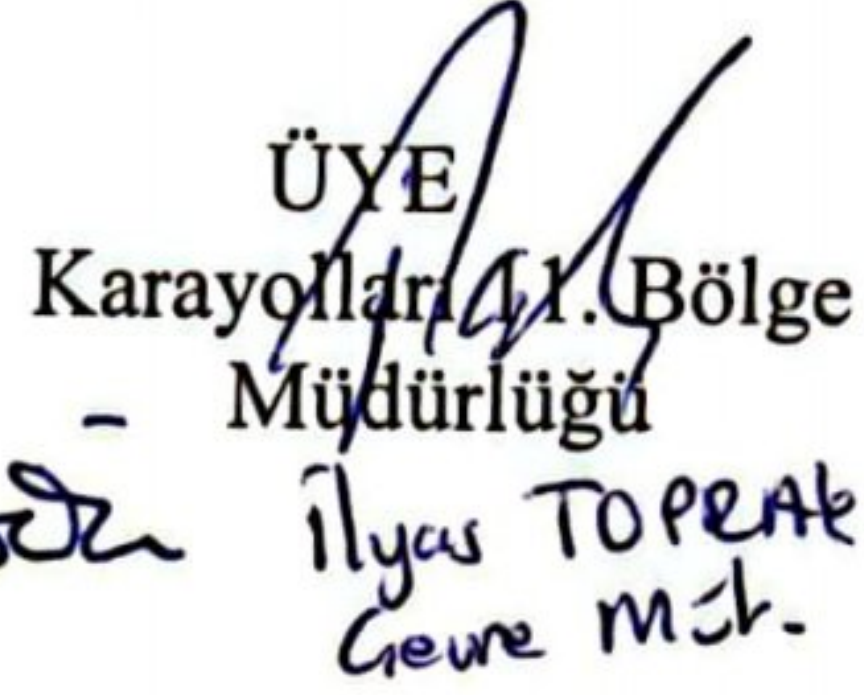 ÜYE
Karayolları 11. Bölge
Müdürlüğü
İlyas TOPRAK
Çevre Müh.